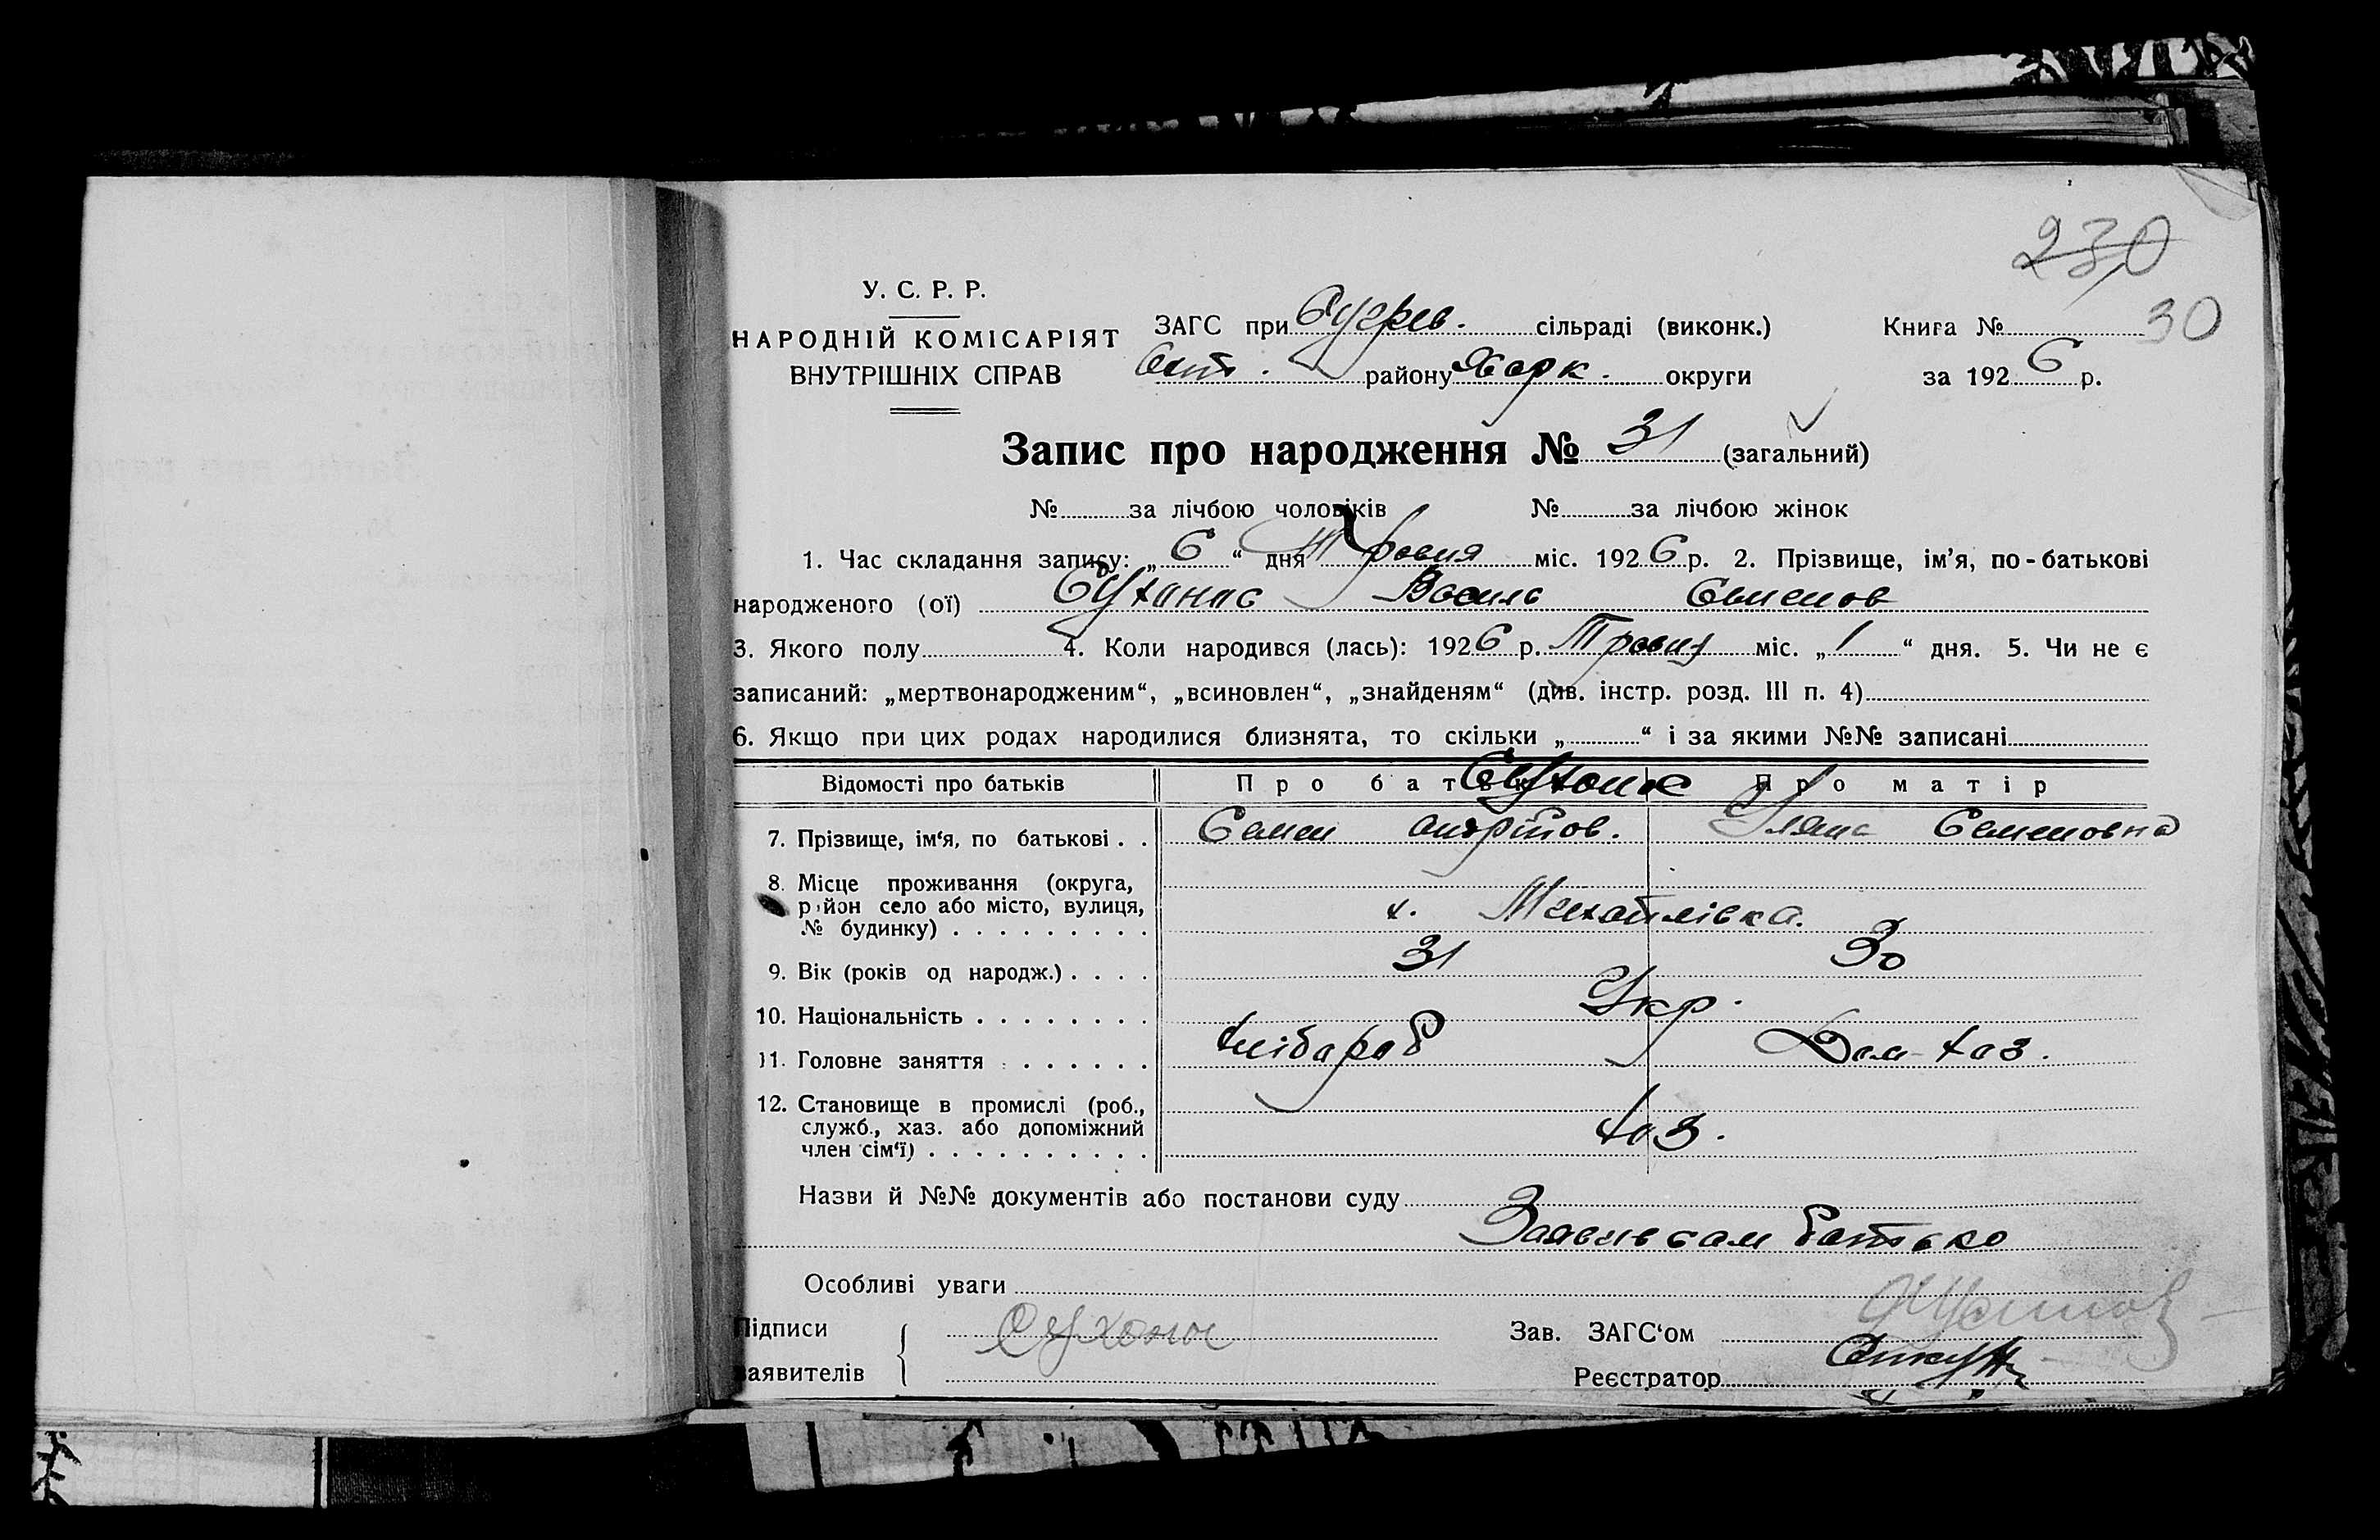 230
30
У. С. Р. Р.
НАРОДНІЙ КОМІСАРІЯТ
ВНУТРІШНІХ СПРАВ
ЗАГС при сільраді (виконк.)
району Харк. округи
Книга №
за 1926 р.
Запис про народження № 31 (загальний)
№ за лічбою чоловіків № за лічбою жінок
1. Час складання запису: „6“ дня Травня міс. 1926 р. 2. Прізвище, ім’я, по-батькові
народженого (ої) Сухонос Василь Семенов
3. Якого полу 4. Коли народився (лась): 1926 р. Травня міс. „1“ дня. 5. Чи не є
записаний: „мертвонародженим“, „всиновлен“, „знайденям“ (див. інстр. розд. III п. 4)
6. Якщо при цих родах народилися близнята, то скільки „ “ і за якими №№ записані
Відомості про батьків Про батька Про матір
Сухонос
7. Прізвище, ім‘я, по батькові . . Семен Уляна Семеновна
8. Місце проживання (округа,
район село або місто, вулиця,
№ будинку) . . . . . . . . . х. Михайлівка.
9. Вік (років од народж.) . . . . 31 30
10. Національність . . . . . . . . Укр.
11. Головне заняття . . . . . . Хлібороб Дом-хаз.
12. Становище в промислі (роб.,
служб., хаз. або допоміжний
член сім‘ї) . . . . . . . . . . хаз.
Назви й №№ документів або постанови суду
Заявив сам батько
Особливі уваги
Підписи
заявителів
Сухонос
Зав. ЗАГС‘ом
Реєстратор